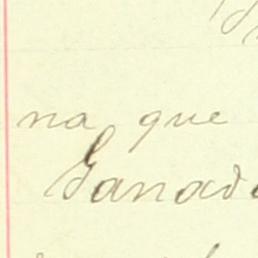 na que
Ganado